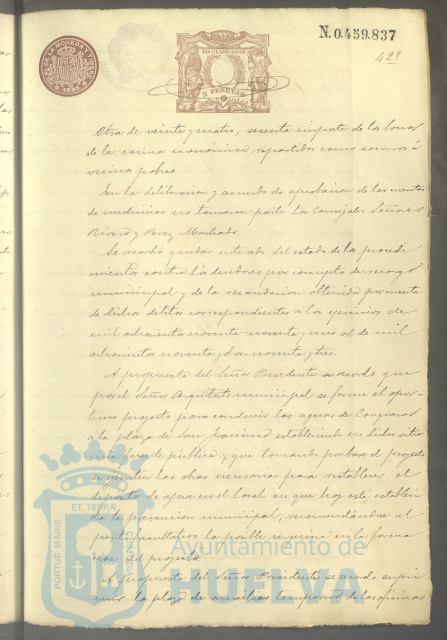 N.0.459.837
11ª CLASE
2 PESETAS
Otra de veinte y cuatro, sesenta importe de los bonos
de la cocina económica repartidos como socorro á
vecinos pobres.
En la deliberacion y acuerdo de aprobacion de las cuentas
de medicinas no tomaron parte los Concejales Señores
Rivero y Perez Machado.
Se acordó quedar enterado del estado de los procedi-
mientos contra los deudores por concepto de recargo
municipal y de la recaudacion obtenida por cuenta
de dichos debitos correspondientes a los ejercicios de
mil ochocientos noventa noventa y uno al de mil
ochocientos noventa y dos noventa y tres.
A propuesta del Señor Presidente se acordó que
por el Señor Arquitecto municipal se forme el opor-
tuno proyecto para conducir las aguas de
á la plaza de San Francisco estableciendo en dicho sitio
una fuente pública y que tomando por base el proyecto
se ejecuten las obras necesarias para restablecer el
deposito de agua en el local en que hoy está estableci-
da la prevencion municipal, recomendandose al
perito facultativo la posible urgencia en la forma-
cion del proyecto.
A propuesta del Señor Presidente se acordó supri-
mir la plaza de auxiliar temporero de las oficinas
PORTUS MARIS
ET TERRÆ
CUSTODIA
Ayuntamiento de
HUELVA